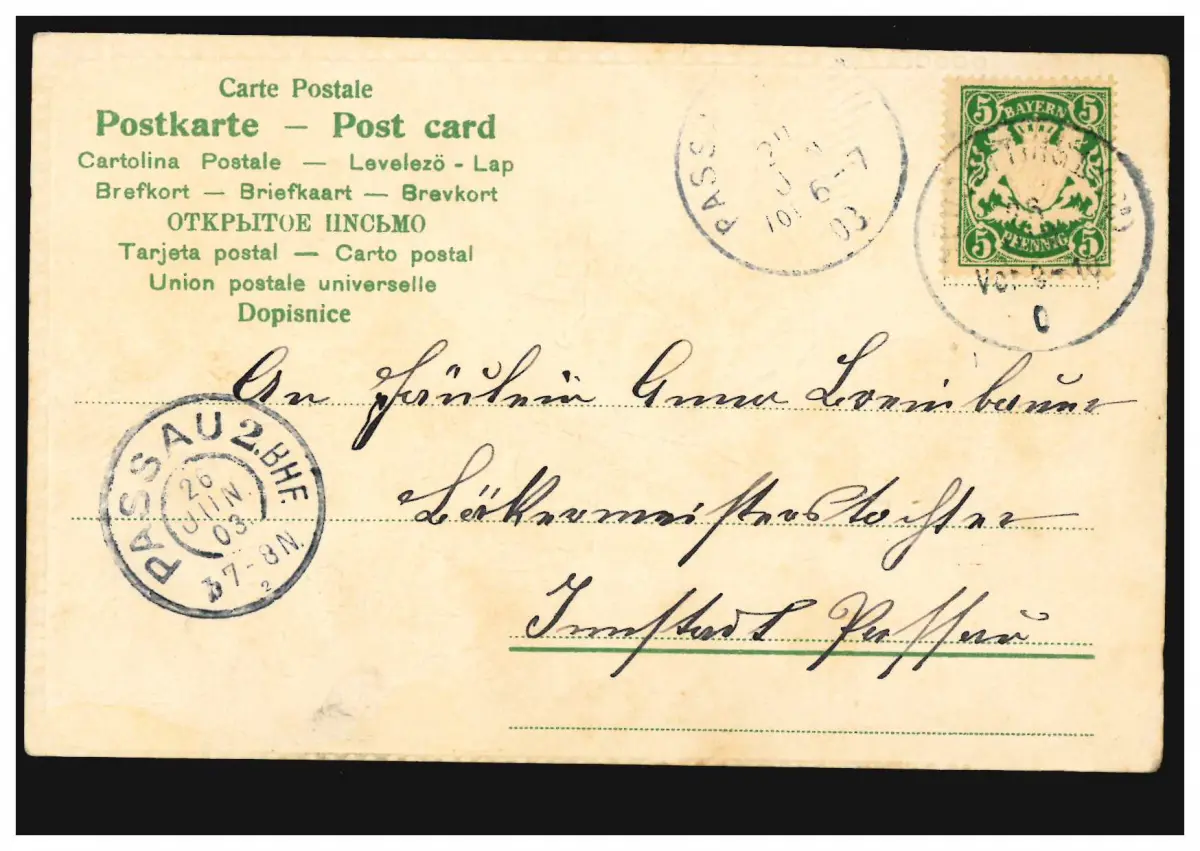 Carte Postale
Postkarte — Post card
Cartolina Postale — Levelezö - Lap
Brefkort — Briefkaart — Brevkort
ОТКРЫТОЕ ПИСЬМО
Tarjeta postal — Carto postal
Union postale universelle
Dopisnice
PASS
6-7
03
5 BAYERN 5
5 PFENNIG 5
Vor 9-10
An Fräulein Anna Breinbauer
Bäkermeisterstochter
Innstadt Passau
PASSAU 2. BHF.
26
JUN.
03
7-8 N.
2